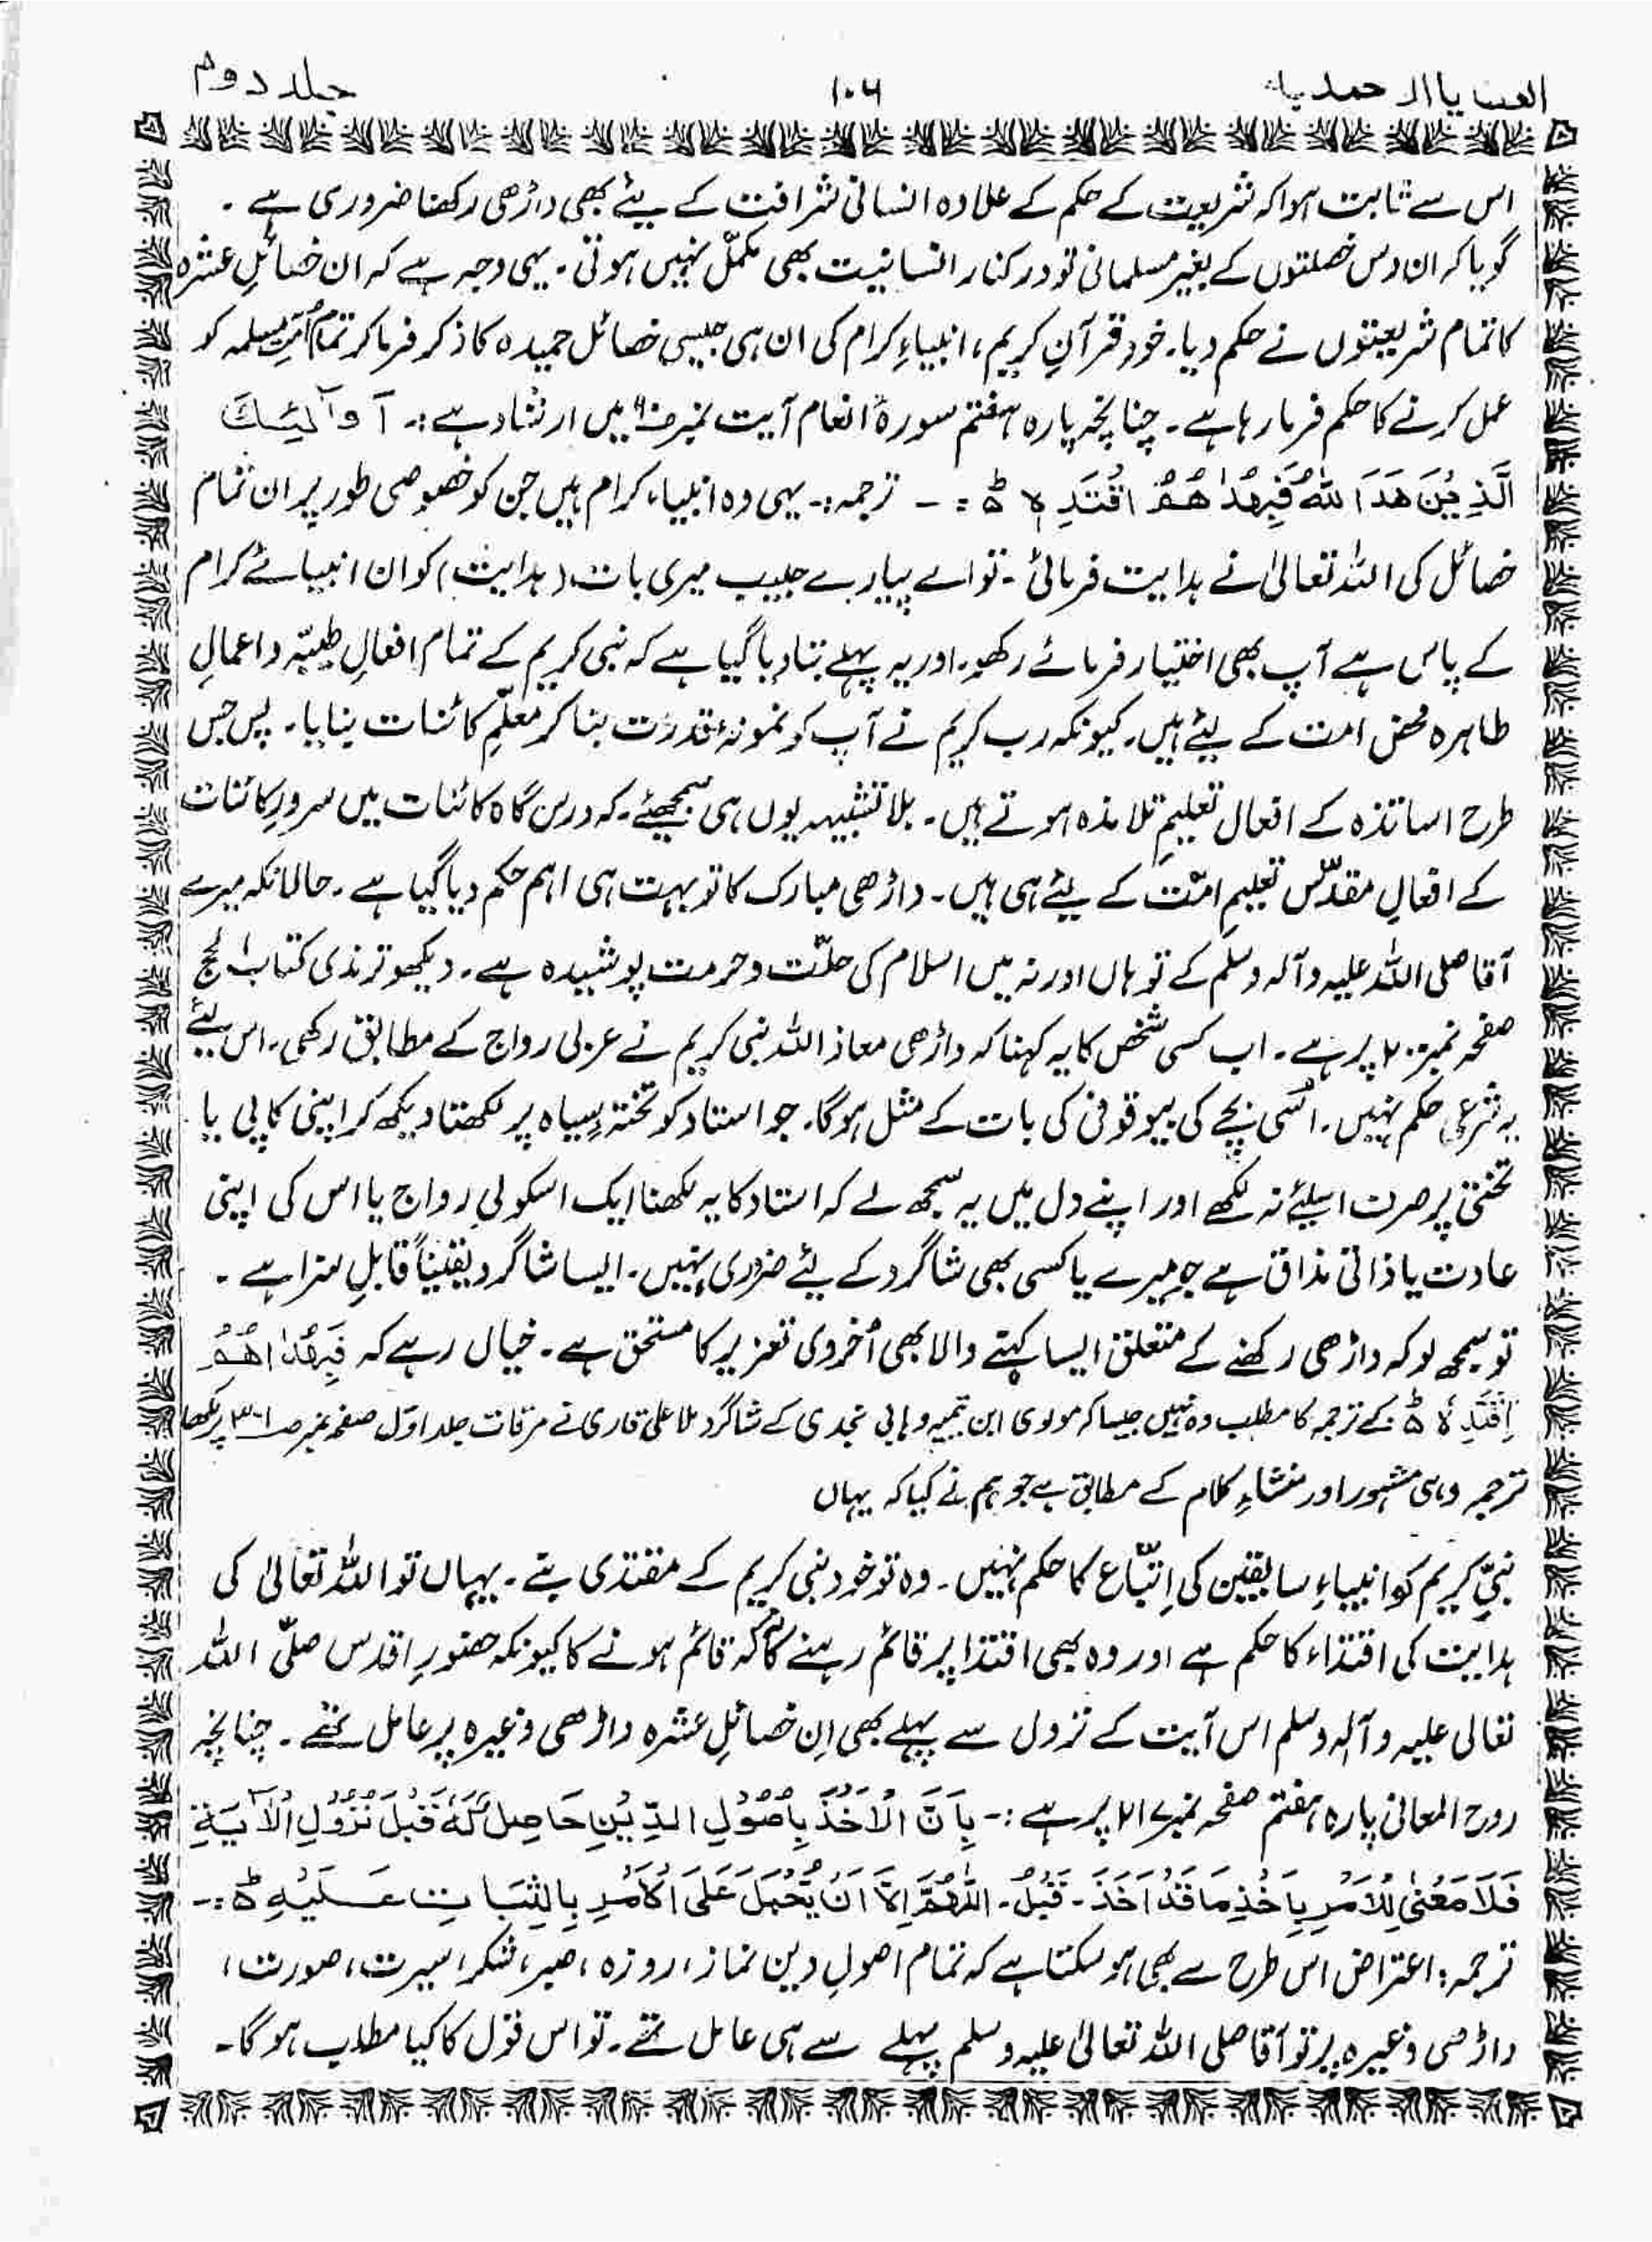 العطایا الاحمدیہ ۱۰۶ جلد دوم
اس سے ثابت ہوا کہ شریعت کے حکم کے علاوہ انسانی شرافت کے لیئے بھی داڑھی رکھنا ضروری ہے ۔
گویا کہ ان دس خصلتوں کے بغیر مسلمانی تو درکنار انسانیت بھی مکمل نہیں ہوتی ۔ یہی وجہ ہے کہ ان خصائلِ عشرہ
کا تمام شریعتوں نے حکم دیا۔ خود قرآنِ کریم، انبیاءِ کرام کی ان ہی جیسی خصائل حمیدہ کا ذکر فرما کر تمام امتِ مسلمہ کو
عمل کرنے کا حکم فرما رہا ہے ۔ چنانچہ پارہ ہفتم سورۂ انعام آیت نمبر ۹۰ میں ارشاد ہے :۔ اُولٰٓئِكَ
الَّذِيْنَ هَدَى اللهُ فَبِهُدٰهُمُ اقْتَدِهْ ط :۔ ترجمہ :۔ یہی وہ انبیاء کرام ہیں جن کو خصوصی طور پر ان تمام
خصائل کی اللہ تعالیٰ نے ہدایت فرمائی ۔ تو اے پیارے حبیب میری بات (ہدایت) کو ان انبیائے کرام
کے پاس ہے آپ بھی اختیار فرمائے رکھو۔ اور یہ پہلے بتا دیا گیا ہے کہ نبی کریم کے تمام افعالِ طیبّہ و اعمالِ
طاہرہ محض امت کے لیئے ہیں۔ کیونکہ رب کریم نے آپ کو نمونۂ قدرت بنا کر معلّمِ کائنات بنایا ۔ پس جس
طرح اساتذہ کے افعال تعلیمِ تلامذہ ہوتے ہیں ۔ بلا تشبیہہ یوں ہی سمجھیئے ۔ کہ درس گاہ کائنات میں سرورِ کائنات
کے افعالِ مقدّس تعلیمِ امّت کے لیئے ہی ہیں ۔ داڑھی مبارک کا تو بہت ہی اہم حکم دیا گیا ہے ۔ حالانکہ میرے
آقا صلی اللہ علیہ وآلہ وسلم کے تو ہاں اور نہ میں اسلام کی حلّت و حرمت پوشیدہ ہے ۔ دیکھو ترمذی کتاب الحج
صفحہ نمبر پر ہے ۔ اب کسی شخص کا یہ کہنا کہ داڑھی معاذ اللہ نبی کریم نے عربی رواج کے مطابق رکھی ۔ اس لیئے
یہ شرعی حکم نہیں ۔ اسی بچے کی بیوقوفی کی بات کے مثل ہوگا ۔ جو استاد کو تختۂ سیاہ پر لکھتا دیکھ کر اپنی کاپی یا
تختی پر صرف اسلیئے نہ لکھے اور اپنے دل میں یہ سمجھ لے کہ استاد کا یہ لکھنا ایک اسکولی رواج یا اس کی اپنی
عادت یا ذاتی مذاق ہے جو میرے یا کسی بھی شاگرد کے لیئے ضروری نہیں ۔ ایسا شاگرد یقیناً قابلِ سزا ہے ۔
تو سمجھ لو کہ داڑھی رکھنے کے متعلق ایسا کہنے والا بھی اُخروی تعزیر کا مستحق ہے ۔ خیال رہے کہ فَبِهُدٰاهُمُ
اِقْتَدِهْ ط کے ترجمہ کا مطلب وہ نہیں جیسا کہ مولوی ابن تیمیہ وہابی نجدی کے شاگرد ملا علی قاری نے مرقات جلد اوّل صفحہ نمبر ص ۳۰۱ پر لکھا
ترجمہ وہی مشہور اور منشاءِ کلام کے مطابق ہے جو ہم نے کیا کہ یہاں
نبیِّ کریم کو انبیاءِ سابقین کی اِتّباع کا حکم نہیں ۔ وہ تو خود نبی کریم کے مقتدی بنے ۔ یہاں تو اللہ تعالیٰ کی
ہدایت کی اقتداء کا حکم ہے اور وہ بھی اقتدا پر قائم رہنے کا نہ کہ قائم ہونے کا کیونکہ حضورِ اقدس صلّی اللہ
تعالی علیہ وآلہ وسلم اس آیت کے نزول سے پہلے بھی اِن خصائلِ عشرہ داڑھی وغیرہ پر عامل تھے ۔ چنانچہ
روح المعانی پارہ ہفتم صفحہ نمبر ۲۱۷ پر ہے :۔ بِاَنَّ الْاَخْذَ بِاُصُوْلِ الدِّيْنِ حَاصِلٌ لَهٗ قَبْلَ نُزُوْلِ الْاٰيَةِ
فَلَا مَعْنٰى لِلْاَمْرِ بِاَخْذِ مَا قَدْ اَخَذَ ۔ قَبْلُ ۔ اَللّٰهُمَّ اِلَّا اَنْ يُّحْمَلَ عَلَى الْاَمْرِ بِالثَّبَاتِ عَلَيْهِ ط :۔
ترجمہ : اعتراض اس طرح سے بھی ہو سکتا ہے کہ تمام اصولِ دین نماز ، روزہ ، صبر ، شکر ، سیرت ، صورت ،
داڑھی وغیرہ پر تو آقا صلی اللہ تعالیٰ علیہ وسلم پہلے سے ہی عامل تھے ۔ تو اس قول کا کیا مطلب ہو گا ۔